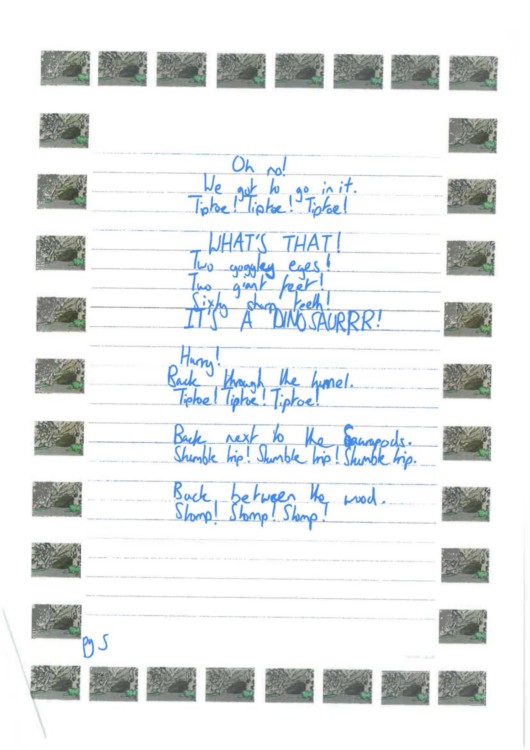 Oh no!
We got to go in it.
Tiptoe! Tiptoe! Tiptoe!
WHAT'S THAT!
Two goggley eyes!
Two giant feet!
Sixty sharp teeth!
IT'S A DINOSAURRR!
Hurry!
Back through the tunnel.
Tiptoe! Tiptoe! Tiptoe!
Back next to the Sauropods.
Stumble trip! Stumble trip! Stumble trip.
Back between the wood.
Stomp! Stomp! Stomp!
pg 5